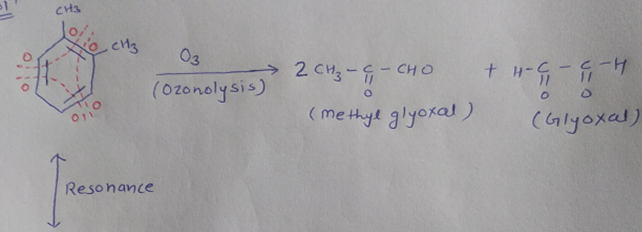 CH3
CH3
O O
O O
O O
O3
(Ozonolysis)
2 CH3 - C - CHO + H - C - C - H
O O O
(methyl glyoxal) (Glyoxal)
Resonance